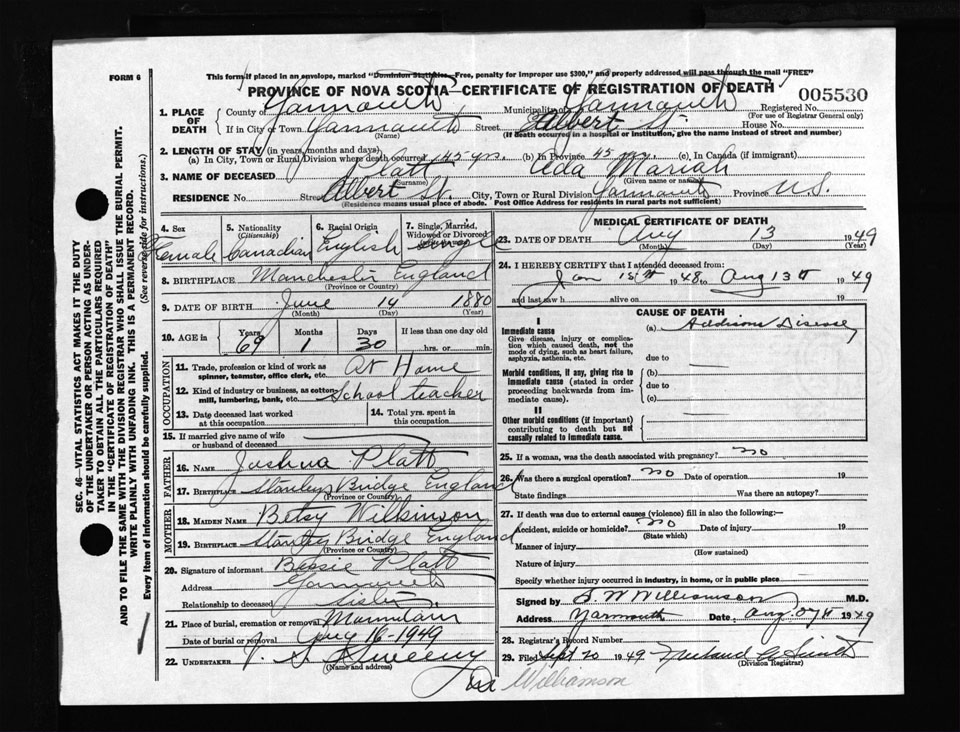 FORM 6
This form if placed in an envelope, marked "Dominion Statistics—Free, penalty for improper use $300," and properly addressed will pass through the mail "FREE"
PROVINCE OF NOVA SCOTIA—CERTIFICATE OF REGISTRATION OF DEATH
005530
1. PLACE OF DEATH
County of Yarmouth Municipality of Yarmouth Registered No.
(For use of Registrar General only)
If in City or Town Yarmouth Street Albert St. House No.
(Name) (If death occurred in a hospital or institution, give the name instead of street and number)
2. LENGTH OF STAY (in years, months and days)
(a) In City, Town or Rural Division where death occurred 45 yrs. (b) In Province 45 yrs. (c) In Canada (if immigrant)
3. NAME OF DECEASED Platt Ada Mariah
(Surname) (Given name or names)
RESIDENCE No. Street Albert St. City, Town or Rural Division Yarmouth Province N.S.
(Residence means usual place of abode. Post Office Address for residents in rural parts not sufficient)
4. Sex
Female
5. Nationality (Citizenship)
Canadian
6. Racial Origin
English
7. Single, Married, Widowed or Divorced
Single
8. BIRTHPLACE Manchester England
(Province or Country)
9. DATE OF BIRTH June 14 1880
(Month) (Day) (Year)
10. AGE in Years Months Days If less than one day old
69 1 30 hrs. or min.
OCCUPATION
11. Trade, profession or kind of work as spinner, teamster, office clerk, etc. At Home
12. Kind of industry or business, as cotton mill, lumbering, bank, etc. School teacher
13. Date deceased last worked at this occupation
14. Total yrs. spent in this occupation
15. If married give name of wife or husband of deceased
FATHER
16. NAME Joshua Platt
17. BIRTHPLACE Stanley Bridge England
(Province or Country)
MOTHER
18. MAIDEN NAME Betsy Wilkinson
19. BIRTHPLACE Stanley Bridge England
(Province or Country)
20. Signature of informant Bessie Platt
Address Yarmouth
Relationship to deceased Sister
21. Place of burial, cremation or removal Mountain
Date of burial or removal Aug 16-1949
22. UNDERTAKER V. S. Sweeny
(Name and address)
MEDICAL CERTIFICATE OF DEATH
23. DATE OF DEATH Aug 13 1949
(Month) (Day) (Year)
24. I HEREBY CERTIFY that I attended deceased from:
Jan 1948 to Aug 13th 1949
and last saw h alive on 19
CAUSE OF DEATH
I
Immediate cause
Give disease, injury or complication which caused death, not the mode of dying, such as heart failure, asphyxia, asthenia, etc.
(a) Addisons Disease
due to
Morbid conditions, if any, giving rise to immediate cause (stated in order proceeding backwards from immediate cause).
(b)
due to
(c)
II
Other morbid conditions (if important) contributing to death but not causally related to immediate cause.
25. If a woman, was the death associated with pregnancy? no
26. Was there a surgical operation? no Date of operation 19
State findings Was there an autopsy?
27. If death was due to external causes (violence) fill in also the following:—
Accident, suicide or homicide? no Date of injury 19
(State which)
Manner of injury
(How sustained)
Nature of injury
Specify whether injury occurred in industry, in home, or in public place
Signed by S. W. Williamson M.D.
Address Yarmouth Date Aug. 1949
28. Registrar's Record Number
29. Filed Sept 20 1949
(Division Registrar)
Dr Williamson
SEC. 46—VITAL STATISTICS ACT MAKES IT THE DUTY
OF THE UNDERTAKER OR PERSON ACTING AS UNDER-
TAKER TO OBTAIN ALL THE PARTICULARS REQUIRED
IN THE "CERTIFICATE OF REGISTRATION OF DEATH"
AND TO FILE THE SAME WITH THE DIVISION REGISTRAR WHO SHALL ISSUE THE BURIAL PERMIT.
WRITE PLAINLY WITH UNFADING INK. THIS IS A PERMANENT RECORD.
Every item of information should be carefully supplied. (See reverse side for instructions.)